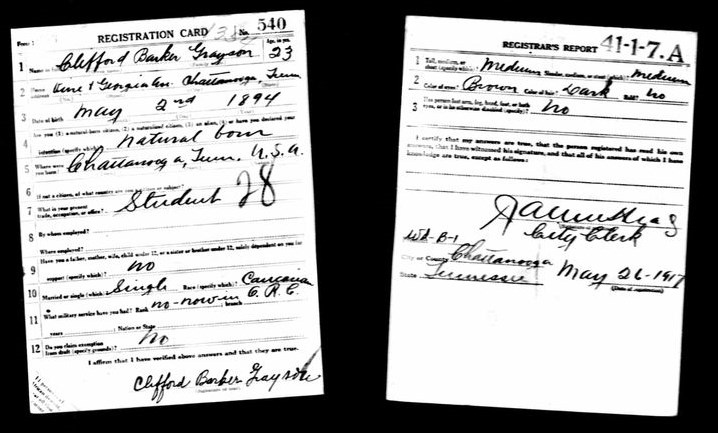 Form 1 REGISTRATION CARD No. 540
1 Name in full Clifford Barker Grayson Age, in yrs. 23
2 Home address Vine & Georgia Ave. Chattanooga, Tenn
3 Date of birth May 2nd 1894
4 Are you (1) a natural-born citizen, (2) a naturalized citizen, (3) an alien, (4) or have you declared your
intention (specify which)? Natural born
5 Where were you born? Chattanooga, Tenn, U.S.A.
6 If not a citizen, of what country are you a citizen or subject?
7 What is your present trade, occupation, or office? Student 28
8 By whom employed?
Where employed?
9 Have you a father, mother, wife, child under 12, or a sister or brother under 12, solely dependent on you for
support (specify which)? No
10 Married or single (which)? Single Race (specify which)? Caucasian
11 What military service have you had? Rank no-now in O.R.C. branch
years Nation or State
12 Do you claim exemption from draft (specify grounds)? No
I affirm that I have verified above answers and that they are true.
Clifford Barker Grayson
REGISTRAR'S REPORT 41-1-7. A
1 Tall, medium, or short (specify which)? Medium Slender, medium, or stout (which)? medium
2 Color of eyes? Brown Color of hair? Dark Bald? No
3 Has person lost arm, leg, hand, foot, or both eyes, or is he otherwise disabled (specify)? No
I certify that my answers are true, that the person registered has read his own
answers, that I have witnessed his signature, and that all of his answers of which I have
knowledge are true, except as follows:
City Clerk
Wd-B-1
City or County Chattanooga
State Tennessee May 26-1917
(Date of registration)